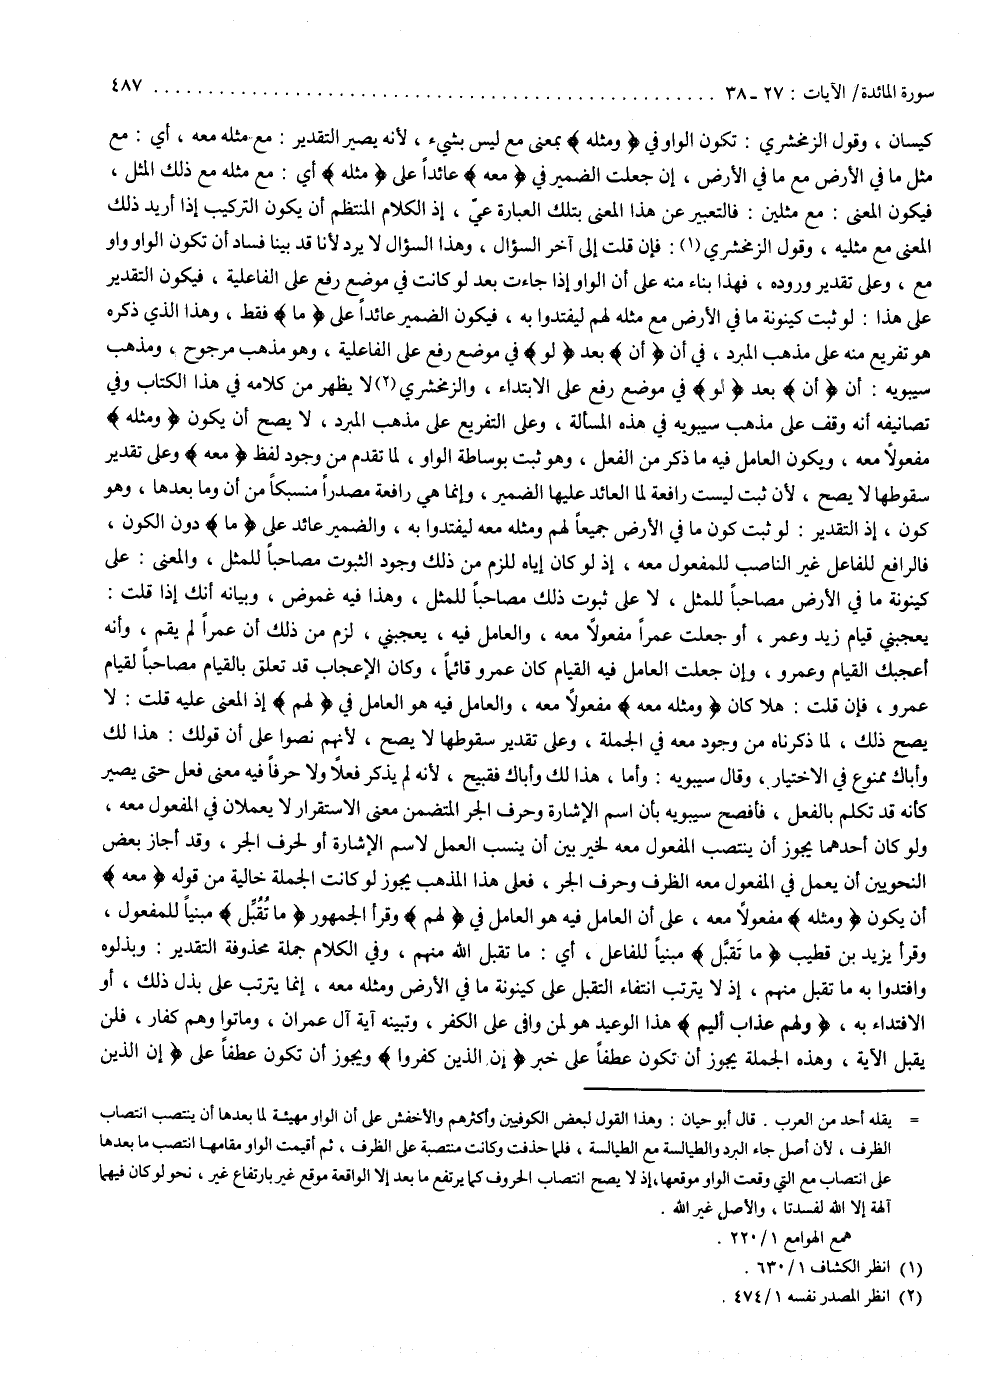 سورة المائدة/ الآيات : ٢٧ ـ ٣٨ . . . . . . . . . . . . . . . . . . . . . . . . . . . . . . . . . . . . . . . . . . . . . . . . . . ٤٨٧
كيسان ، وقول الزمخشري : تكون الواو في ﴿ ومثله ﴾ بمعنى مع ليس بشيء ، لأنه يصير التقدير : مع مثله معه ، أي : مع
مثل ما في الأرض مع ما في الأرض ، إن جعلت الضمير في ﴿ معه ﴾ عائداً على ﴿ مثله ﴾ أي : مع مثله مع ذلك المثل ،
فيكون المعنى : مع مثلين : فالتعبير عن هذا المعنى بتلك العبارة عيّ ، إذ الكلام المنتظم أن يكون التركيب إذا أريد ذلك
المعنى مع مثليه ، وقول الزمخشري (١) : فإن قلت إلى آخر السؤال ، وهذا السؤال لا يرد لأنا قد بينا فساد أن تكون الواو واو
مع ، وعلى تقدير وروده ، فهذا بناء منه على أن الواو إذا جاءت بعد لو كانت في موضع رفع على الفاعلية ، فيكون التقدير
على هذا : لو ثبت كينونة ما في الأرض مع مثله لهم ليفتدوا به ، فيكون الضمير عائداً على ﴿ ما ﴾ فقط ، وهذا الذي ذكره
هو تفريع منه على مذهب المبرد ، في أن ﴿ أن ﴾ بعد ﴿ لو ﴾ في موضع رفع على الفاعلية ، وهو مذهب مرجوح ، ومذهب
سيبويه : أن ﴿ أن ﴾ بعد ﴿ لو ﴾ في موضع رفع على الابتداء ، والزمخشري (٢) لا يظهر من كلامه في هذا الكتاب وفي
تصانيفه أنه وقف على مذهب سيبويه في هذه المسألة ، وعلى التفريع على مذهب المبرد ، لا يصح أن يكون ﴿ ومثله ﴾
مفعولاً معه ، ويكون العامل فيه ما ذكر من الفعل ، وهو ثبت بوساطة الواو ، لما تقدم من وجود لفظ ﴿ معه ﴾ وعلى تقدير
سقوطها لا يصح ، لأن ثبت ليست رافعة لما العائد عليها الضمير ، وإنما هي رافعة مصدراً منسبكاً من أن وما بعدها ، وهو
كون ، إذ التقدير : لو ثبت كون ما في الأرض جميعاً لهم ومثله معه ليفتدوا به ، والضمير عائد على ﴿ ما ﴾ دون الكون ،
فالرافع للفاعل غير الناصب للمفعول معه ، إذ لو كان إياه للزم من ذلك وجود الثبوت مصاحباً للمثل ، والمعنى : على
كينونة ما في الأرض مصاحباً للمثل ، لا على ثبوت ذلك مصاحباً للمثل ، وهذا فيه غموض ، وبيانه أنك إذا قلت :
يعجبني قيام زيد وعمر ، أو جعلت عمراً مفعولاً معه ، والعامل فيه ، يعجبني ، لزم من ذلك أن عمراً لم يقم ، وأنه
أعجبك القيام وعمرو ، وإن جعلت العامل فيه القيام كان عمرو قائماً ، وكان الإعجاب قد تعلق بالقيام مصاحباً لقيام
عمرو ، فإن قلت : هلا كان ﴿ ومثله معه ﴾ مفعولاً معه ، والعامل فيه هو العامل في ﴿ لهم ﴾ إذ المعنى عليه قلت : لا
يصح ذلك ، لما ذكرناه من وجود معه في الجملة ، وعلى تقدير سقوطها لا يصح ، لأنهم نصوا على أن قولك : هذا لك
وأباك ممنوع في الاختيار ، وقال سيبويه : وأما ، هذا لك وأباك فقبيح ، لأنه لم يذكر فعلًا ولا حرفاً فيه معنى فعل حتى يصير
كأنه قد تكلم بالفعل ، فأفصح سيبويه بأن اسم الإشارة وحرف الجر المتضمن معنى الاستقرار لا يعملان في المفعول معه ،
ولو كان أحدهما يجوز أن ينتصب المفعول معه لخير بين أن ينسب العمل لاسم الإشارة أو لحرف الجر ، وقد أجاز بعض
النحويين أن يعمل في المفعول معه الظرف وحرف الجر ، فعلى هذا المذهب يجوز لو كانت الجملة خالية من قوله ﴿ معه ﴾
أن يكون ﴿ ومثله ﴾ مفعولاً معه ، على أن العامل فيه هو العامل في ﴿ لهم ﴾ وقرأ الجمهور ﴿ ما تُقُبِّل ﴾ مبنياً للمفعول ،
وقرأ يزيد بن قطيب ﴿ ما تَقبَّل ﴾ مبنياً للفاعل ، أي : ما تقبل الله منهم ، وفي الكلام جملة محذوفة التقدير : وبذلوه
وافتدوا به ما تقبل منهم ، إذ لا يترتب انتفاء التقبل على كينونة ما في الأرض ومثله معه ، إنما يترتب على بذل ذلك ، أو
الافتداء به ، ﴿ ولهم عذاب أليم ﴾ هذا الوعيد هو لمن وافى على الكفر ، وتبينه آية آل عمران ، وماتوا وهم كفار ، فلن
يقبل الآية ، وهذه الجملة يجوز أن تكون عطفاً على خبر ﴿ إن الذين كفروا ﴾ ويجوز أن تكون عطفاً على ﴿ إن الذين
= يقله أحد من العرب . قال أبو حيان : وهذا القول لبعض الكوفيين وأكثرهم والأخفش على أن الواو مهيئة لما بعدها أن ينتصب انتصاب
الظرف ، لأن أصل جاء البرد والطيالسة مع الطيالسة ، فلما حذفت وكانت منتصبة على الظرف ، ثم أقيمت الواو مقامها انتصب ما بعدها
على انتصاب مع التي وقعت الواو موقعها،إذ لا يصح انتصاب الحروف كما يرتفع ما بعد إلا الواقعة موقع غير بارتفاع غير ، نحو لو كان فيهما
آلهة إلا الله لفسدتا ، والأصل غير الله .
همع الهوامع ١/ ٢٢٠ .
(١) انظر الكشاف ١/ ٦٣٠ .
(٢) انظر المصدر نفسه ١/ ٤٧٤ .